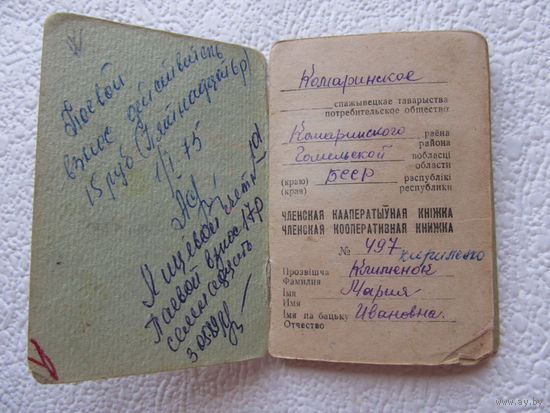 Паевой
взнос действитель
15 руб (Пятнадцать р)
1/I 75
Лицевой счет №
Паевой взнос 17р
семнадцать
Комаринское
спажывецкае таварыства
потребительское общество
Комаринского раёна
района
Гомельской вобласці
области
(краю) БССР рэспублікі
(края) республики
ЧЛЕНСКАЯ КААПЕРАТЫЎНАЯ КНІЖКА
ЧЛЕНСКАЯ КООПЕРАТИВНАЯ КНИЖКА
№ 497
Прозвішча Клименок
Фамилия
Імя Мария
Имя
Імя па бацьку Ивановна
Отчество
www.ay.by